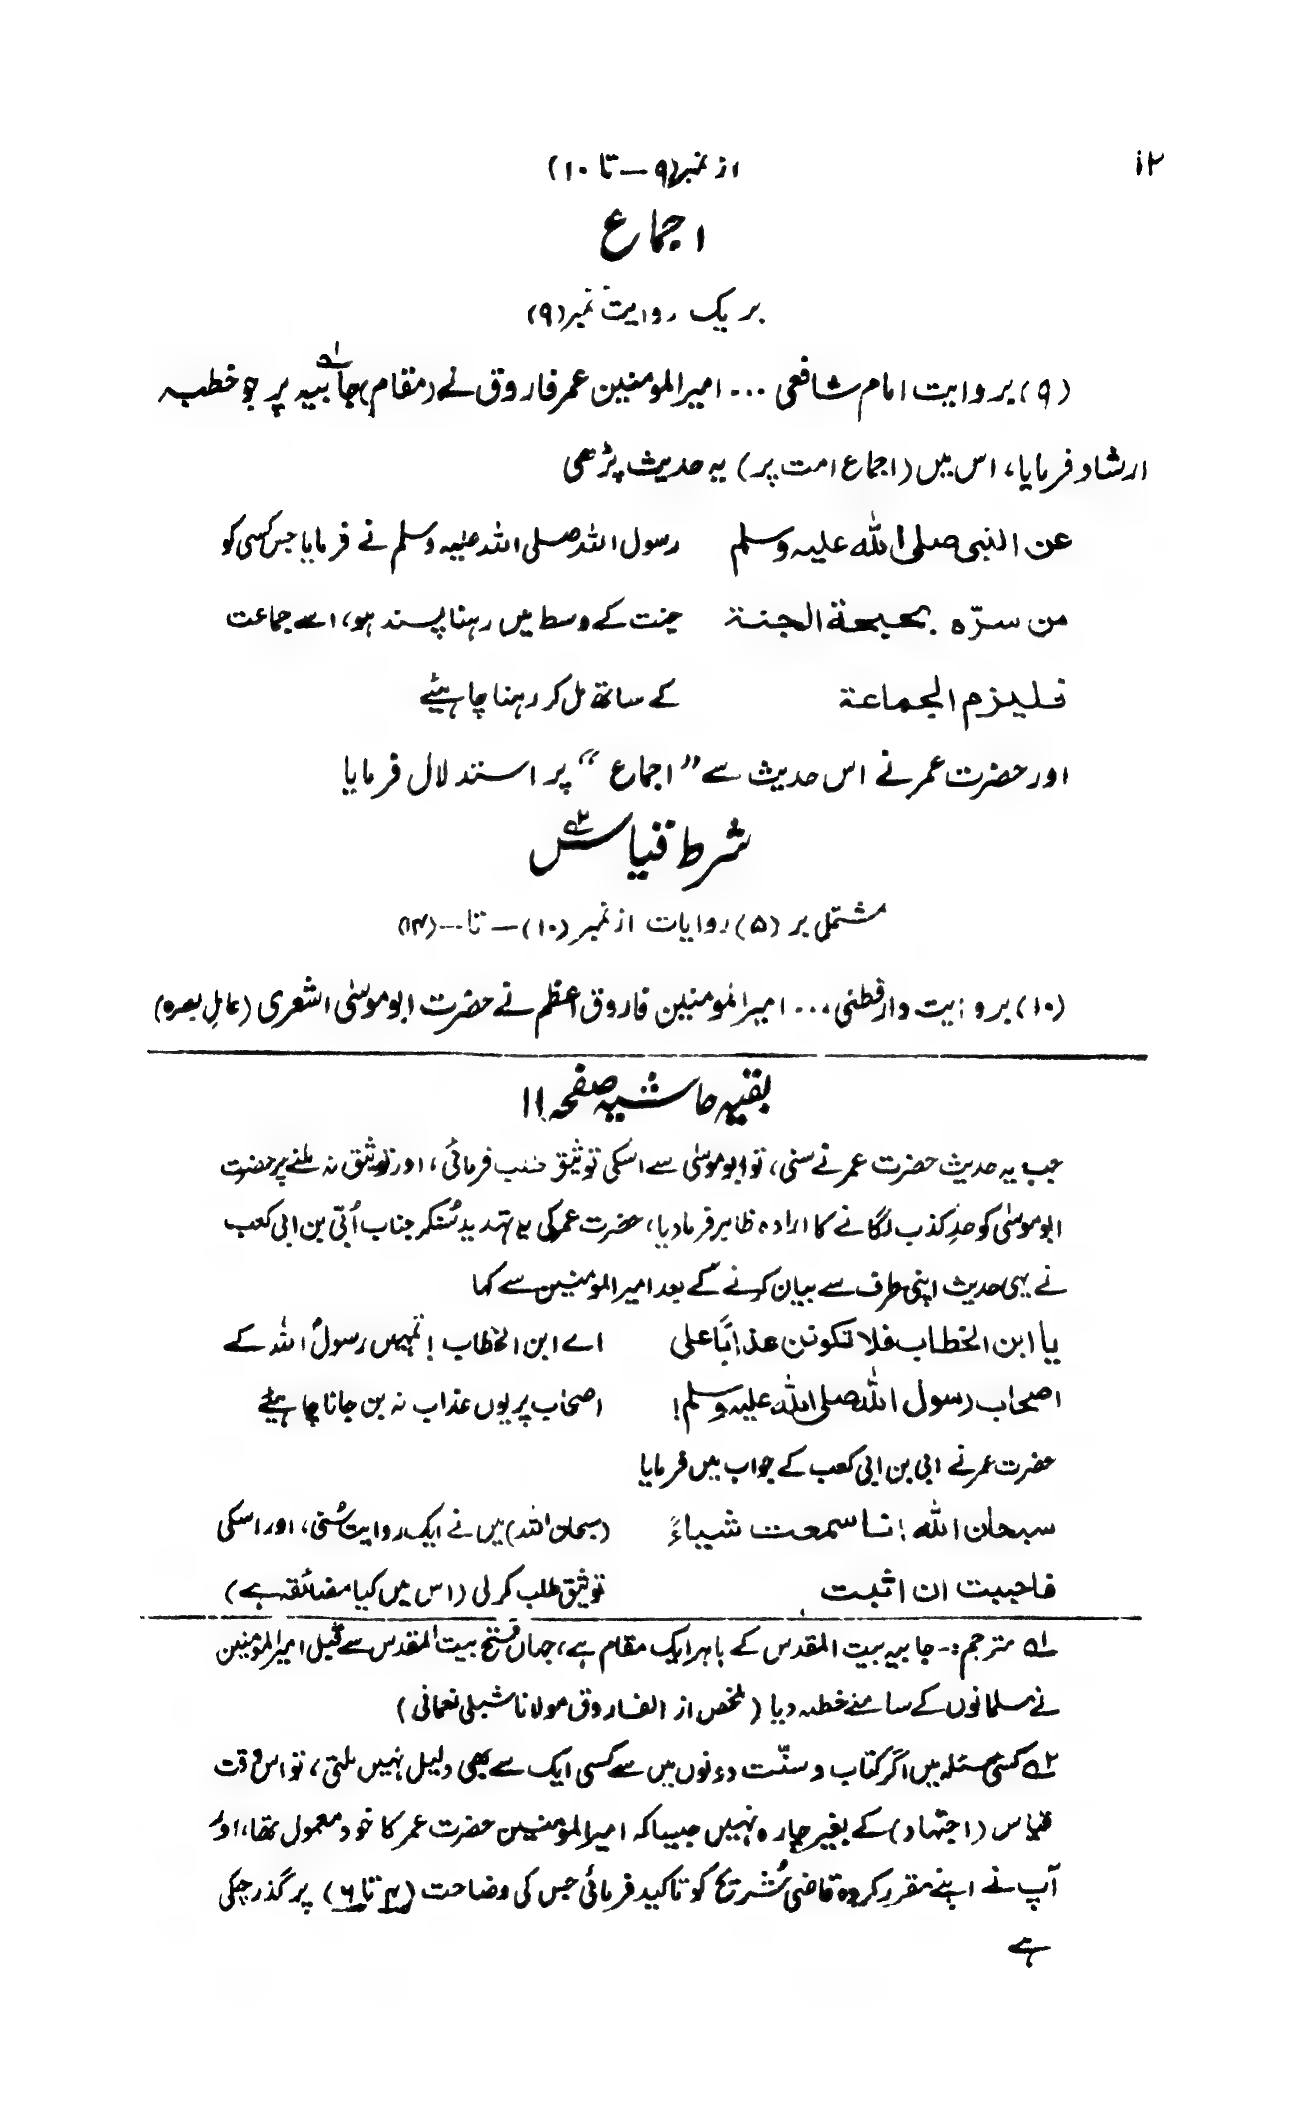 ۱۲
از نمبر (۹ — تا ۱۰)
اجماع
بر یک روایت نمبر (۹)
(۹) بروایت امام شافعی ... امیرالمومنین عمر فاروق نے (مقام) جابیہ۱ پر جو خطبہ
ارشاد فرمایا، اس میں (اجماع امت پر) یہ حدیث پڑھی
عن النبی صلی اللہ علیہ وسلم رسول اللہ صلی اللہ علیہ وسلم نے فرمایا جس کسی کو
من سرّہ بحبحة الجنة جنت کے وسط میں رہنا پسند ہو، اسے جماعت
فلیزم الجماعة کے ساتھ مل کر رہنا چاہیئے
اور حضرت عمر نے اس حدیث سے "اجماع" پر استدلال فرمایا
شرط قیاس۲
مشتمل بر (۵) روایات از نمبر (۱۰) — تا --- (۱۴)
(۱۰) بروایت دارقطنی ... امیرالمومنین فاروق اعظم نے حضرت ابو موسیٰ اشعری (عامل بصرہ)
بقیہ حاشیہ صفحہ ۱۱
جب یہ حدیث حضرت عمر نے سنی، تو ابو موسیٰ سے اسکی توثیق طلب فرمائی، اور توثیق نہ ملنے پر حضرت
ابو موسیٰ کو حدِ کذب لگانے کا ارادہ ظاہر فرما دیا، حضرت عمر کی یہ تہدید سُنکر جناب اُبّی بن ابی کعب
نے یہی حدیث اپنی طرف سے بیان کرنے کے بعد امیرالمومنین سے کہا
یا ابن الخطاب فلا تکونن عذابًا علی اے ابن الخطاب! تمہیں رسول اللہ کے
اصحاب رسول اللہ صلی اللہ علیہ وسلم! اصحاب پر یوں عذاب نہ بن جانا چاہیئے
حضرت عمر نے ابی بن ابی کعب کے جواب میں فرمایا
سبحان اللہ! انا سمعت شیاءً (سبحان اللہ) میں نے ایک روایت سُنی، اور اسکی
فاحببت ان اثبت توثیق طلب کر لی (اس میں کیا مضائقہ ہے)
۱؎ مترجم:- جابیہ بیت المقدس کے باہر ایک مقام ہے، جہاں فتح بیت المقدس سے قبل امیرالمومنین
نے مسلمانوں کے سامنے خطبہ دیا (ملخص از الفاروق مولانا شبلی نعمانی)
۲؎ کسی مسئلہ میں اگر کتاب و سنّت دونوں میں سے کسی ایک سے بھی دلیل نہیں ملتی، تو اس وقت
قیاس (اجتہاد) کے بغیر چارہ نہیں جیسا کہ امیرالمومنین حضرت عمر کا خود معمول تھا، اور
آپ نے اپنے مقرر کردہ قاضی شُریح کو تاکید فرمائی جس کی وضاحت (۴ تا ۶) پر گذر چکی
ہے